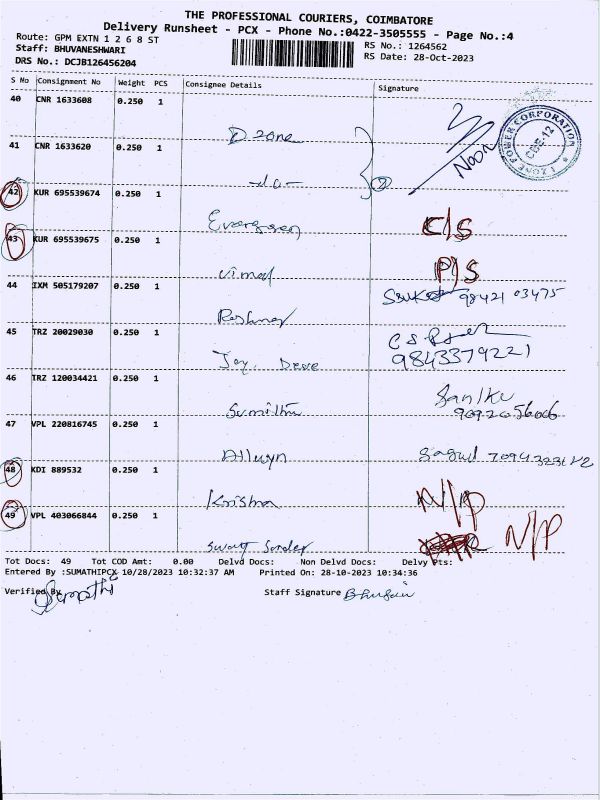 THE PROFESSIONAL COURIERS, COIMBATORE
Delivery Runsheet - PCX - Phone No.:0422-3505555 - Page No.:4
Route: GPM EXTN 1 2 6 8 ST RS No.: 1264562
Staff: BHUVANESHWARI RS Date: 28-Oct-2023
DRS No.: DCJB126456204
S No Consignment No Weight PCS Consignee Details Signature
40 CNR 1633608 0.250 1
D zone
41 CNR 1633620 0.250 1
-do- 2
42 KUR 695539674 0.250 1
Evergreen C/S
43 KUR 695539675 0.250 1
Vimal P/S
44 IXM 505179207 0.250 1 98421 03475
Reshma
45 TRZ 20029030 0.250 1
9843379221
46 TRZ 120034421 0.250 1
9092056006
47 VPL 220816745 0.250 1
48 KDI 889532 0.250 1
Krishna N/P
49 VPL 403066844 0.250 1 N/P
Tot Docs: 49 Tot COD Amt: 0.00 Delvd Docs: Non Delvd Docs: Delvy Pts:
Entered By :SUMATHIPCX 10/28/2023 10:32:37 AM Printed On: 28-10-2023 10:34:36
Verified By Sumathi Staff Signature